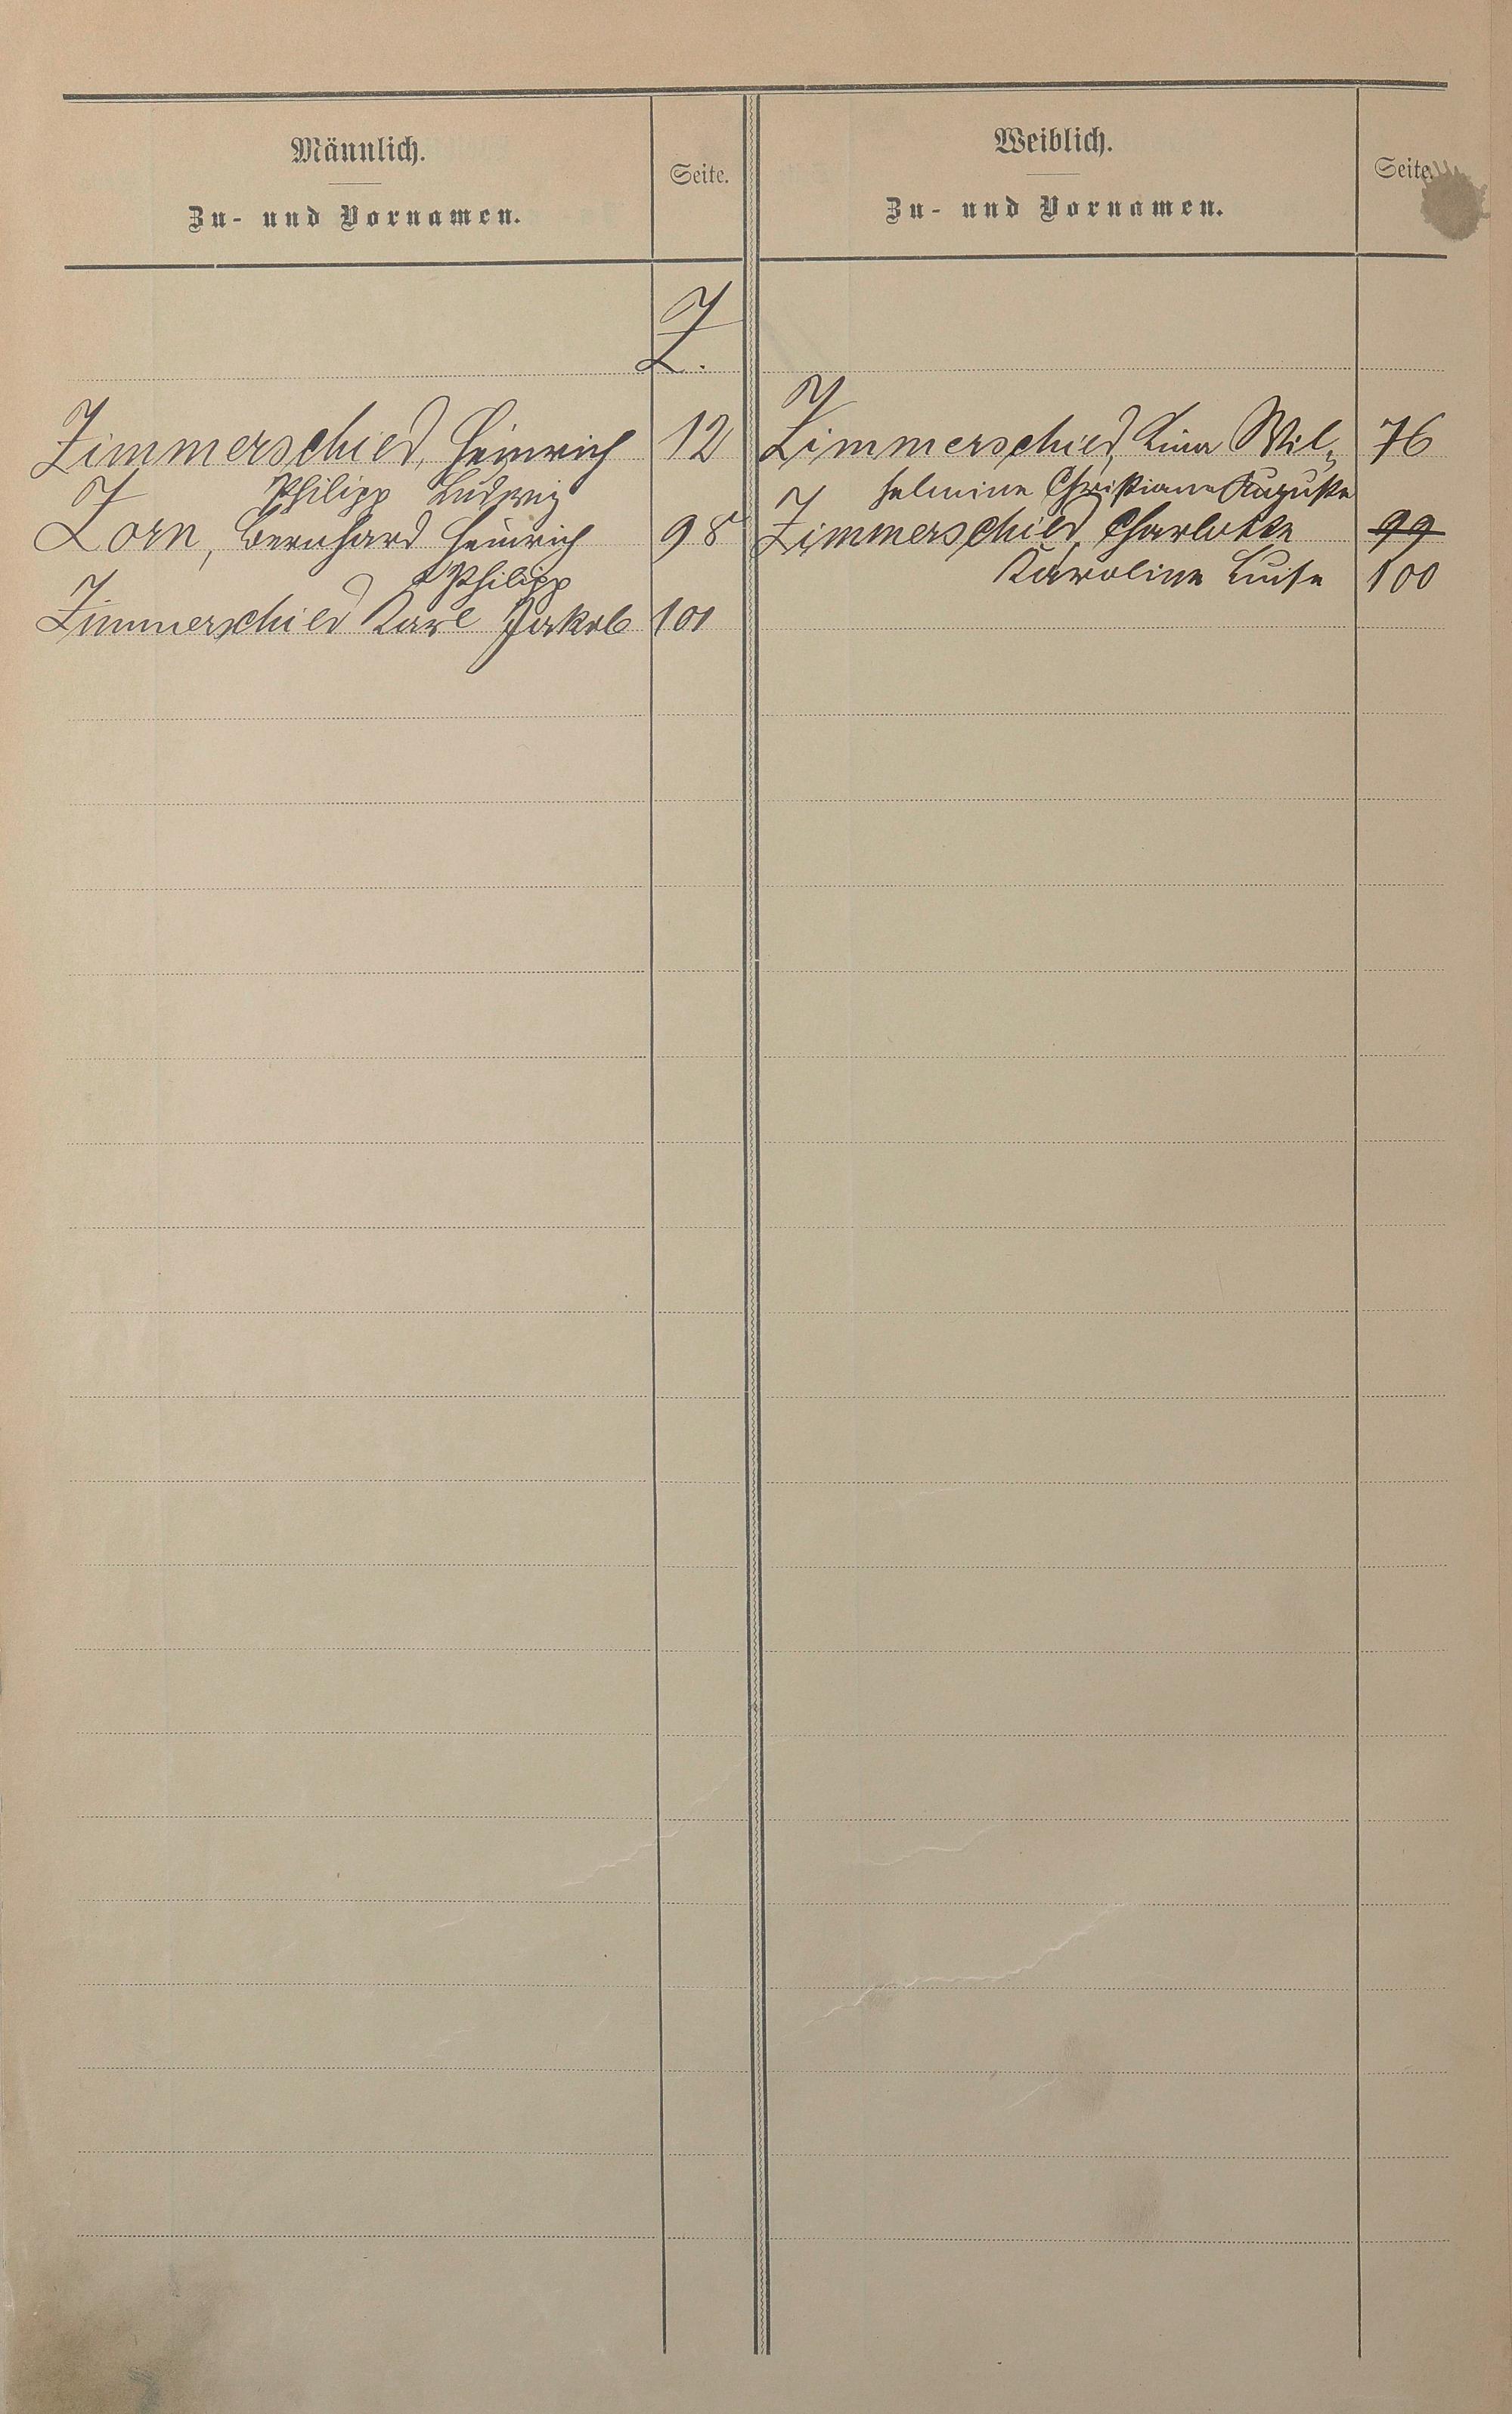 Männlich.
Zu- und Vornamen.
Seite.
Weiblich.
Zu- und Vornamen.
Seite.
Z.
Zimmerschied, Heinrich 12
Philipp Ludwig
Zorn, Bernhard Heinrich 98
Philipp
Zimmerschied Karl Jakob 101
Zimmerschied, Lina Wil-
76
helmine Christiane Auguste
Zimmerschied, Charlotte 99
Karoline Luise 100